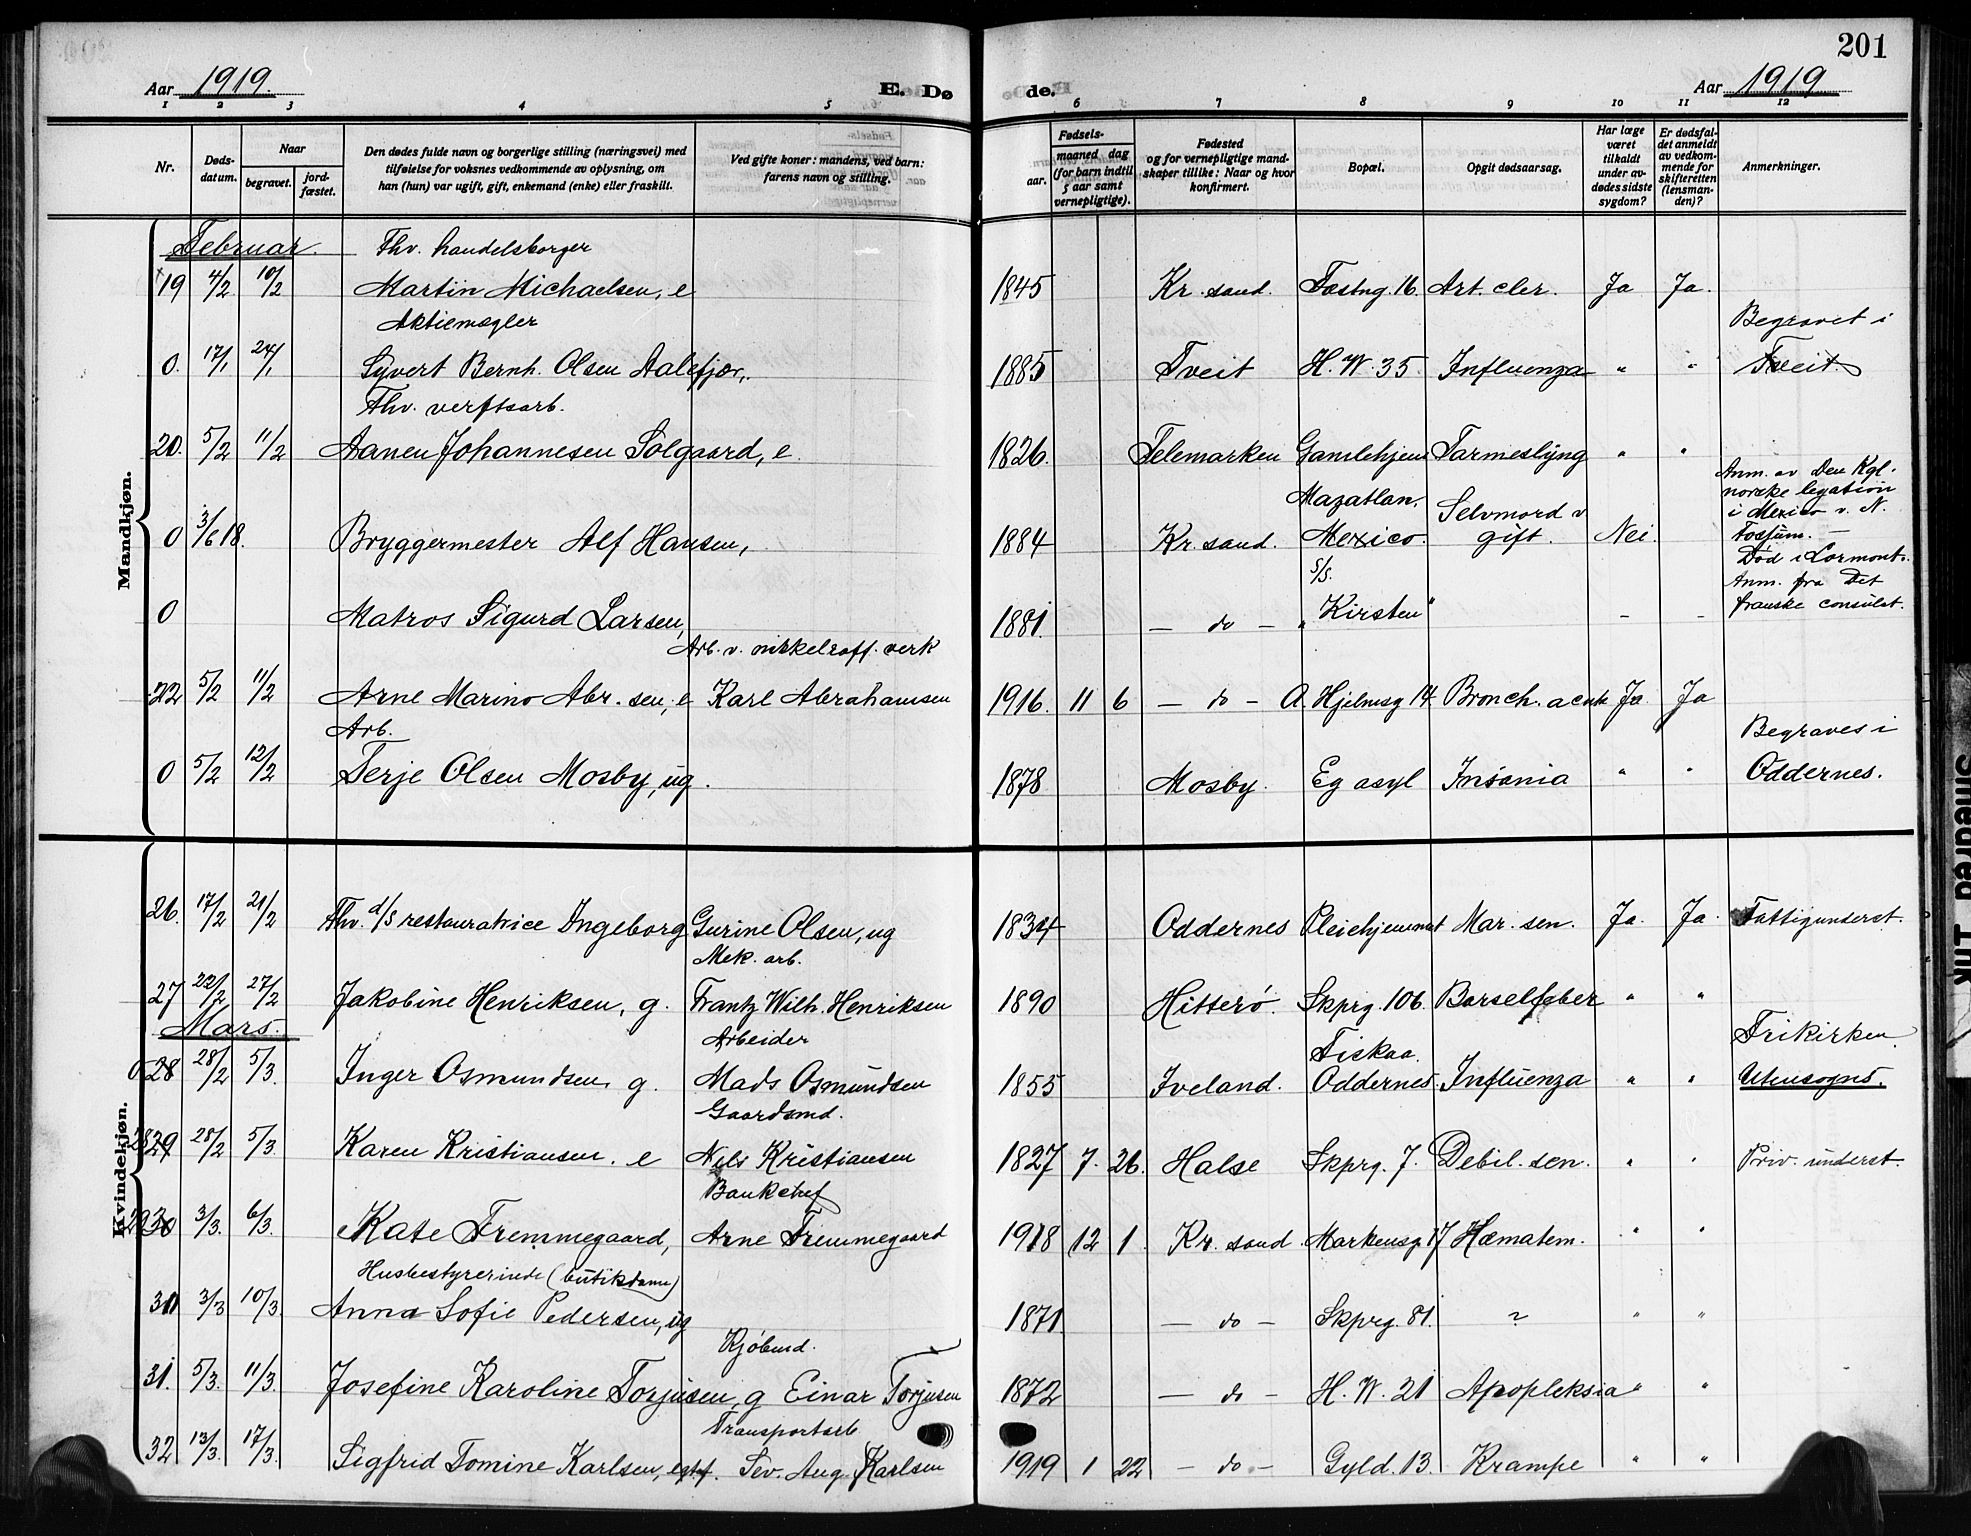 201
Aar 1919. E. Døde. Aar 1919
1 2 3 4 5 6 7 8 9 10 11 12
Nr. Døds-datum. Naar begravet. jord-fæstet. Den dødes fulde navn og borgerlige stilling (næringsvei) med tilføielse for voksnes vedkommende av oplysning, om han (hun) var ugift, gift, enkemand (enke) eller fraskilt. Ved gifte koner: mandens, ved barn: farens navn og stilling. Fødsels- aar. maaned dag (for barn indtil 5 aar samt vernepligtige). Fødested og for vernepligtige mandskaper tillike: Naar og hvor konfirmert. Bopæl. Opgit dødsaarsag. Har læge været tilkaldt under avdødes sidste sygdom? Er dødsfaldet anmeldt av vedkommende for skifteretten (lensmanden)? Anmerkninger.
Mandkjøn.
Februar. Fhv. handelsborger
19 4/2 10/2 Martin Michaelsen, e 1845 Kr. sand. Fæstng. 16. Art. cler. Ja Ja.
Aktiemægler Begravet i
0. 17/1 24/1 Syvert Bernh. Olsen Aalefjær,. 1885 Tveit H. W. 35. Influenza " " Tveit.
Fhv. verftsarb.
20. 5/2 11/2 Aanen Johannesen Solgaard, e. 1826. Telemarken Gamlehjem Tarmeslyng " "
Mazatlan, Selvmord v Anm. av Den Kgl. norske legation i Mexico v. N.
0 3/6 18. Bryggermester Alf Hansen, 1884 Kr. sand. Mexico. gift. Nei. Fosfum. —
S/S. Død i Lormont. Anm. fra Det
0 Matros Sigurd Larsen, 1881. — do — "Kirsten" - - franske consulat.
Arb. v. nikkelraff. verk
22 5/2 11/2 Arne Marino Abr.sen, e Karl Abrahamsen 1916. 11 6 — do — A. Hjelmsg 14 Bronch. acut Ja Ja
Arb. Begraves i
0 5/2 12/2 Terje Olsen Mosby, ug. 1878 Mosby. Eg asyl Insania " " Oddernes.
Kvindekjøn.
26. 17/2 21/2 Fhv. d/s restauratrice Ingeborg Gurine Olsen, ug 1834 Oddernes Pleiehjemmet Mar. sen. Ja. Ja. Fattigunderst.
Mek. arb.
27 22/2 27/2 Jakobine Henriksen, g. Frantz Wilh. Henriksen 1890 Hitterö. Skprg. 106. Barselfeber " "
Mars. Arbeider Fiskaa. Frikirken.
0 28 28/2 5/3. Inger Osmundsen, g. Mads Osmundsen 1855 Iveland. Oddernes. Influenza " " Utensogns.
Gaardsmd.
28 29 28/2 5/3. Karen Kristiansen. e Nils Kristiansen 1827 7. 26. Halse Skprg. 7. Debil. sen. " " Priv. underst.
Bankchef
29 30 3/3. 6/3. Kate Fremmegaard, Arne Fremmegaard 1918 12 1. Kr. sand. Markensg. 17 Hæmatem. " "
Husbestyrerinde (butiksdame)
30 3/3 10/3. Anna Sofie Pedersen, ug 1871. — do — Skprg. 81. ? " "
Kjøbmd.
31. 5/3. 11/3. Josefine Karoline Torjusen, g Einar Torjusen 1872 — do — H. W. 21 Apopleksia " "
Transportarb
32 13/3. 17/3. Sigfrid Tomine Karlsen, egtf. Sev. Aug. Karlsen 1919 1 22 — do — Gyld. 13. Krampe " "